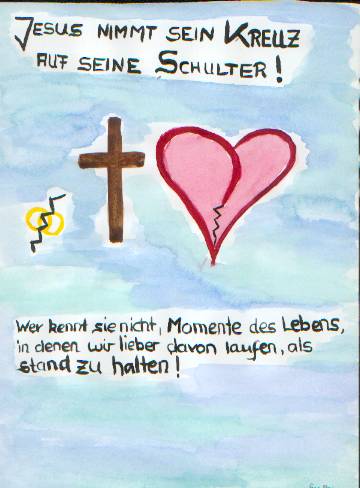 Jesus nimmt sein Kreuz
auf seine Schulter!
Wer kennt sie nicht, Momente des Lebens,
in denen wir lieber davon laufen, als
stand zu halten!